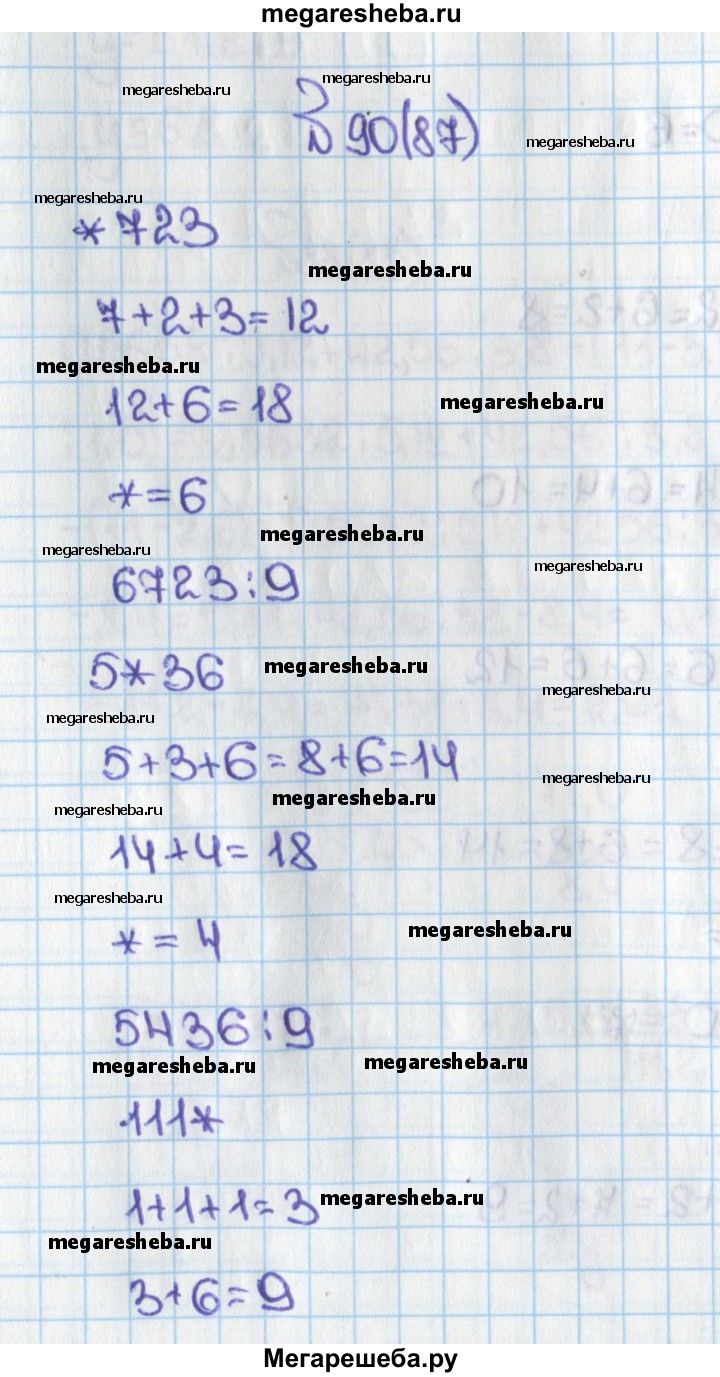 megaresheba.ru
megaresheba.ru
megaresheba.ru
№ 90(87)
megaresheba.ru
megaresheba.ru
*723
megaresheba.ru
7+2+3=12
megaresheba.ru
12+6=18
megaresheba.ru
*=6
megaresheba.ru
megaresheba.ru
megaresheba.ru
6723:9
5*36
megaresheba.ru
megaresheba.ru
megaresheba.ru
5+3+6=8+6=14
megaresheba.ru
megaresheba.ru
megaresheba.ru
14+4=18
megaresheba.ru
*=4
megaresheba.ru
5436:9
megaresheba.ru
megaresheba.ru
111*
1+1+1=3
megaresheba.ru
megaresheba.ru
3+6=9
Мегарешеба.ру